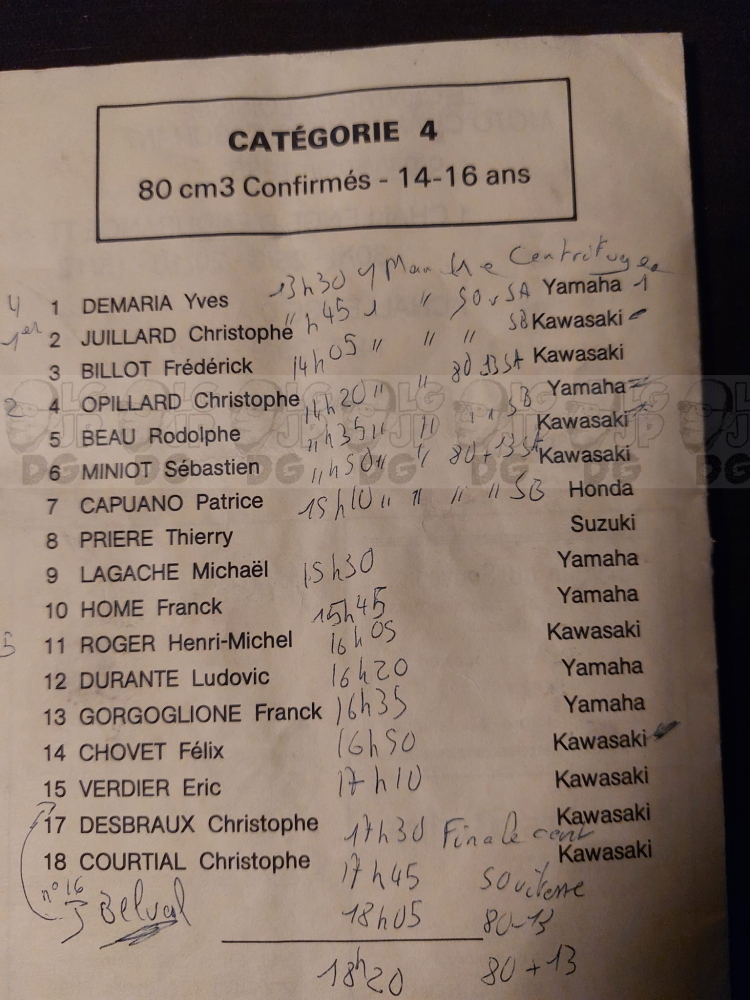 CATÉGORIE 4
80 cm3 Confirmés - 14-16 ans
13h30 Manche Centrifugee
4 1 DEMARIA Yves "h45 1 " 50 v SA Yamaha 1
1er 2 JUILLARD Christophe SB Kawasaki
3 BILLOT Frédérick 14h05 " " " 80-13 SA Kawasaki
2 4 OPILLARD Christophe 14h20 " " " " SB Yamaha
5 BEAU Rodolphe "h35 " " Kawasaki
6 MINIOT Sébastien "h50 " " 80+13 SA Kawasaki
7 CAPUANO Patrice 15h10 " " " " SB Honda
8 PRIERE Thierry Suzuki
9 LAGACHE Michaël 15h30 Yamaha
10 HOME Franck 15h45 Yamaha
5 11 ROGER Henri-Michel 16h05 Kawasaki
12 DURANTE Ludovic 16h20 Yamaha
13 GORGOGLIONE Franck 16h35 Yamaha
14 CHOVET Félix 16h50 Kawasaki
15 VERDIER Eric 17h10 Kawasaki
17 DESBRAUX Christophe 17h30 Finale cent Kawasaki
18 COURTIAL Christophe 17h45 50 vitesse Kawasaki
n° 16 J Belval 18h05 80-13
18h20 80+13
LG JP DG